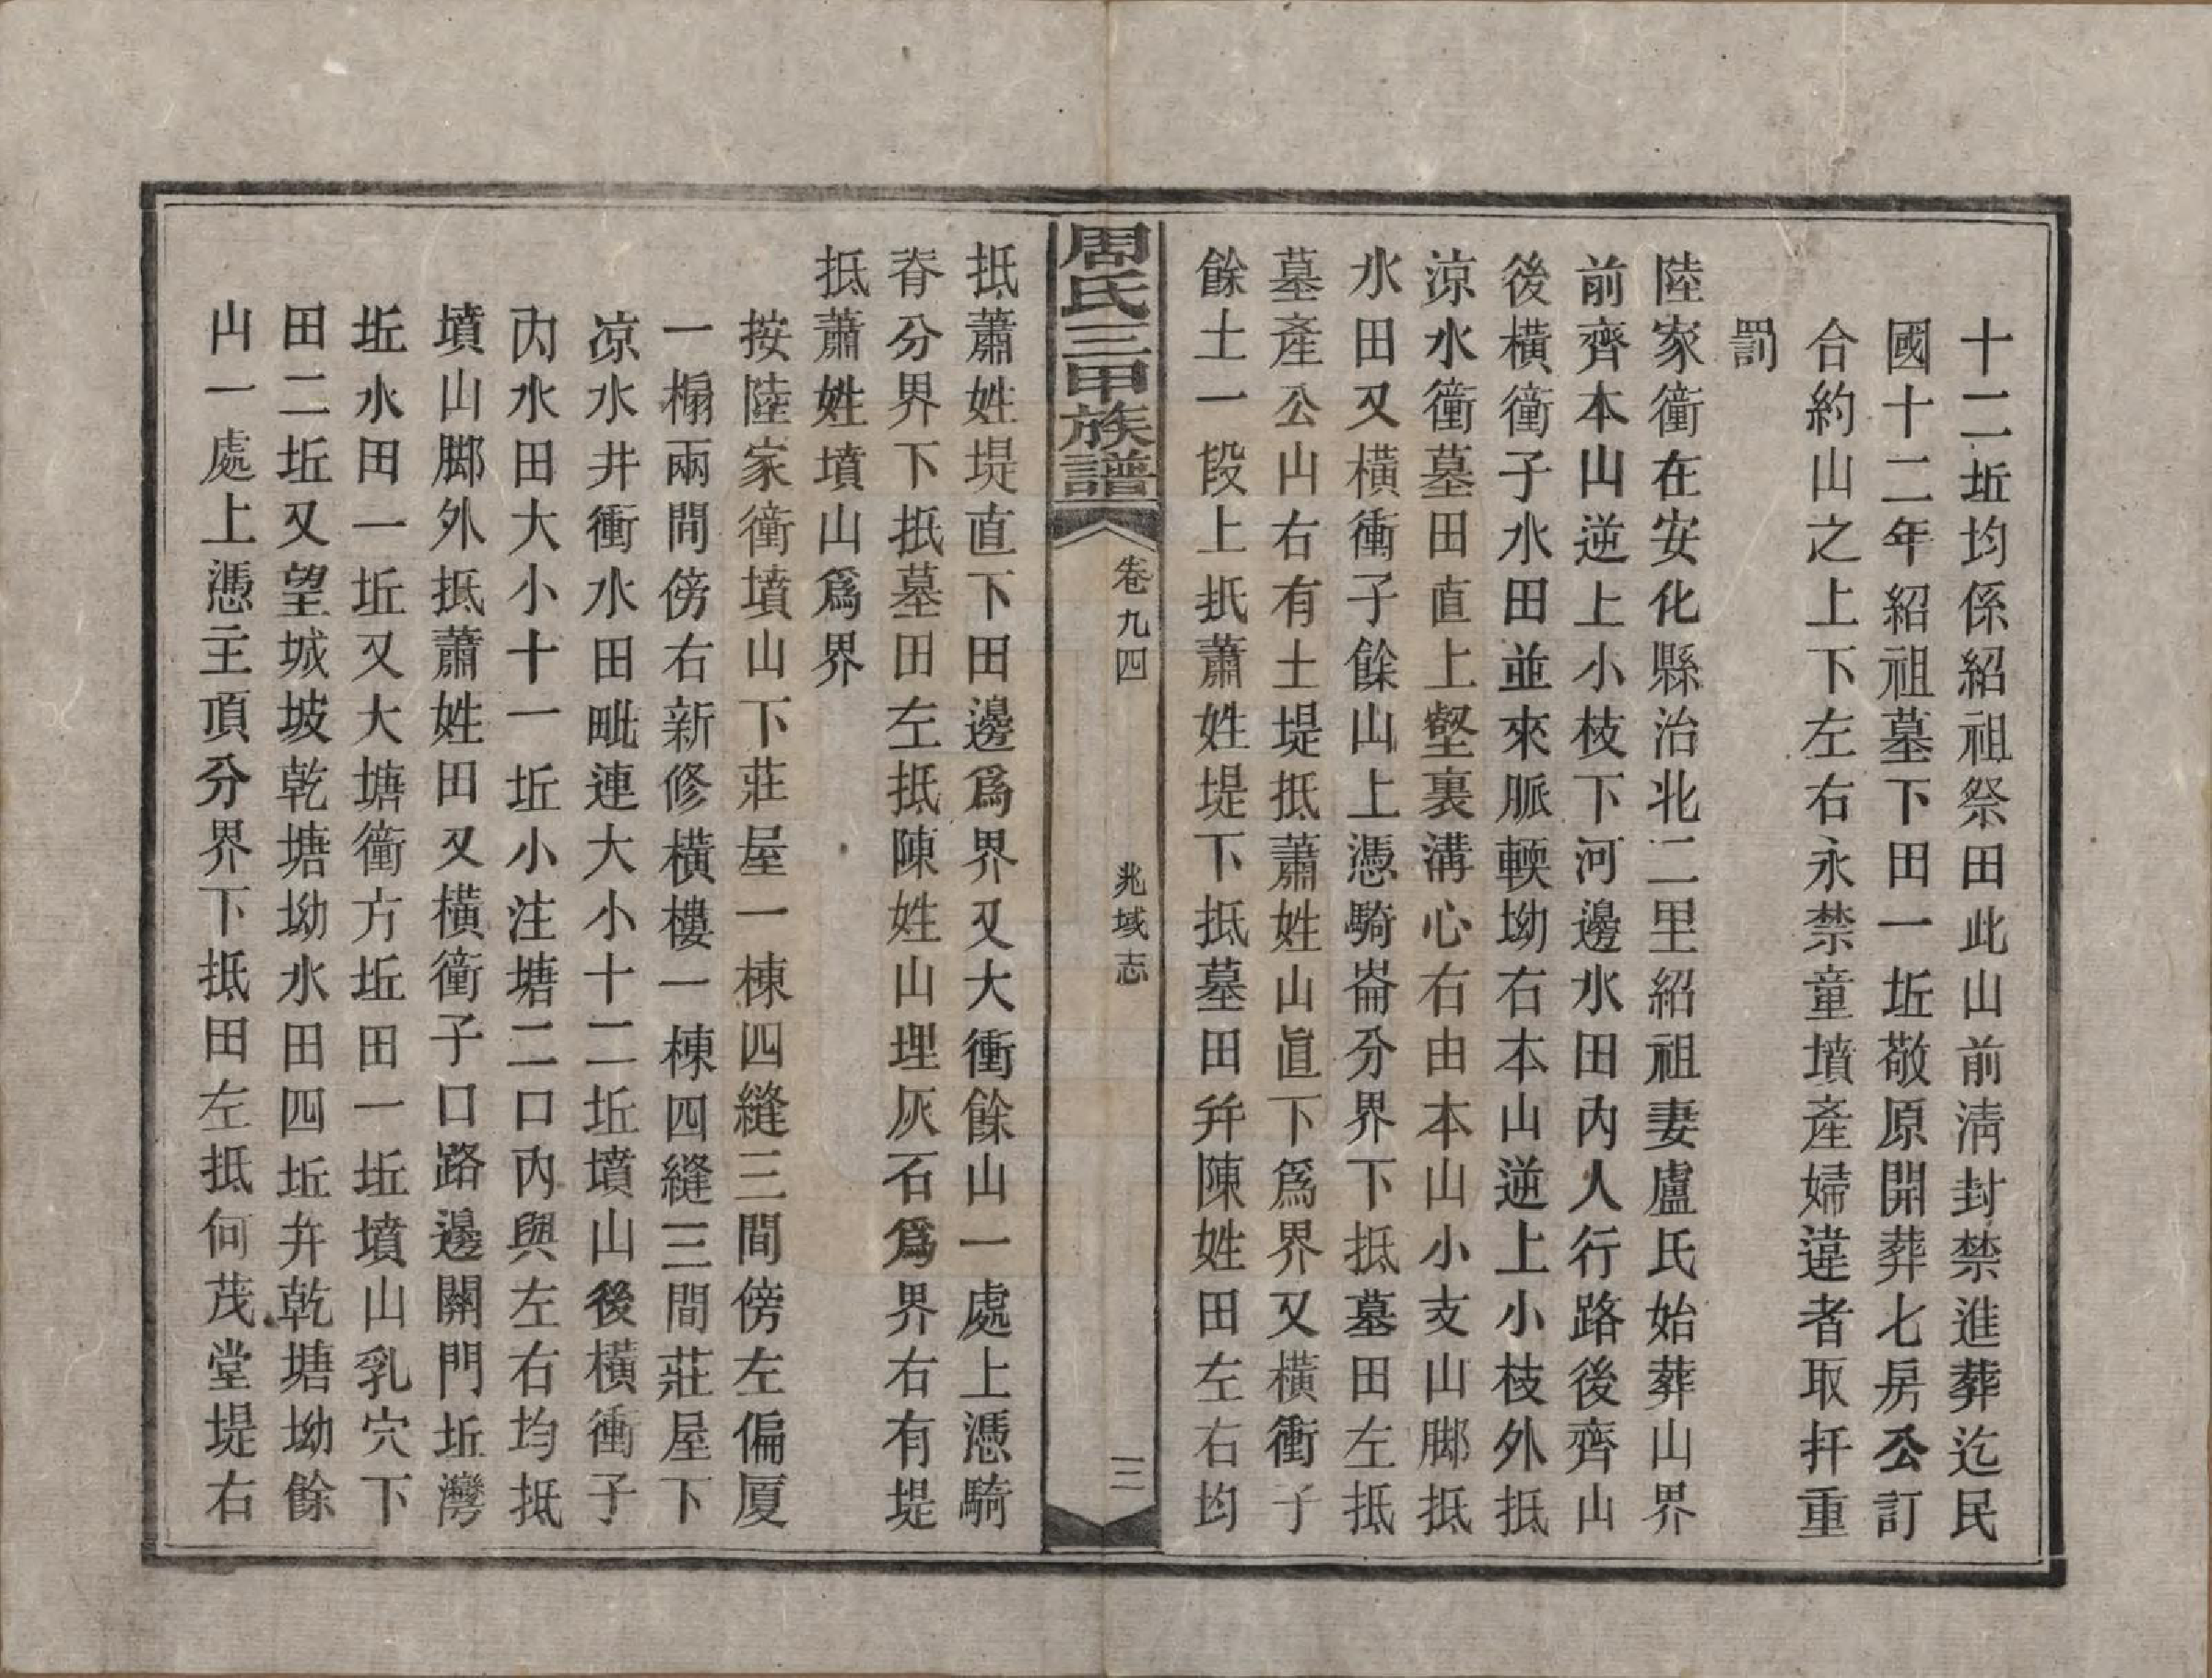 十二坵均係紹祖祭田此山前淸封禁進葬迄民
國十二年紹祖墓下田一坵敬原開葬七房公訂
合約山之上下左右永禁童墳產婦違者取扦重
罰
陸家衝在安化縣治北二里紹祖妻盧氏始葬山界
前齊本山逆上小枝下河邊水田內人行路後齊山
後橫衝子水田並來脈輭坳右本山逆上小枝外抵
涼水衝墓田直上壑裏溝心右由本山小支山脚抵
水田又橫衝子餘山上憑騎崙分界下抵墓田左抵
墓產公山右有土堤抵蕭姓山直下爲界又橫衝子
餘土一段上抵蕭姓堤下抵墓田幷陳姓田左右均
周氏三甲族譜 卷九四 兆域志 三
抵蕭姓堤直下田邊爲界又大衝餘山一處上憑騎
脊分界下抵墓田左抵陳姓山埋灰石爲界右有堤
抵蕭姓墳山爲界
按陸家衝墳山下莊屋一棟四縫三間傍左偏厦
一榻兩間傍右新修橫樓一棟四縫三間莊屋下
凉水井衝水田毗連大小十二坵墳山後橫衝子
內水田大小十一坵小注塘二口內與左右均抵
墳山脚外抵蕭姓田又橫衝子口路邊關門坵灣
坵水田一坵又大塘衝方坵田一坵墳山乳穴下
田二坵又望城坡乾塘坳水田四坵幷乾塘坳餘
山一處上憑主頂分界下抵田左抵何茂堂堤右